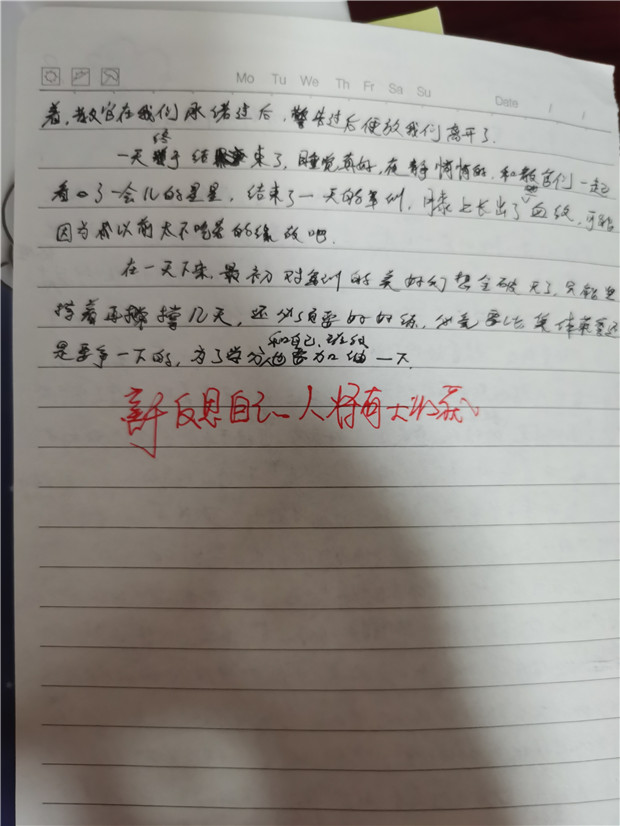 Mo Tu We Th Fr Sa Su Date / /
着，教官在我们承诺过后，警告过后便放我们离开了.
一天终于结束了，睡觉真好，在静悄悄的，和教官们一起
看了一会儿的星星，结束了一天的军训，膝上长出了血纹，可能
因为我以前太不吃苦的缘故吧.
在一天下来，最初对军训的美好幻想全破灭了，只能坚
持着再撑几天，还必须要好好的练，毕竟要让集体荣誉还
是要争一下的，为了学分和自己，班级也要加油一下.
善于反思自己人将有大收获